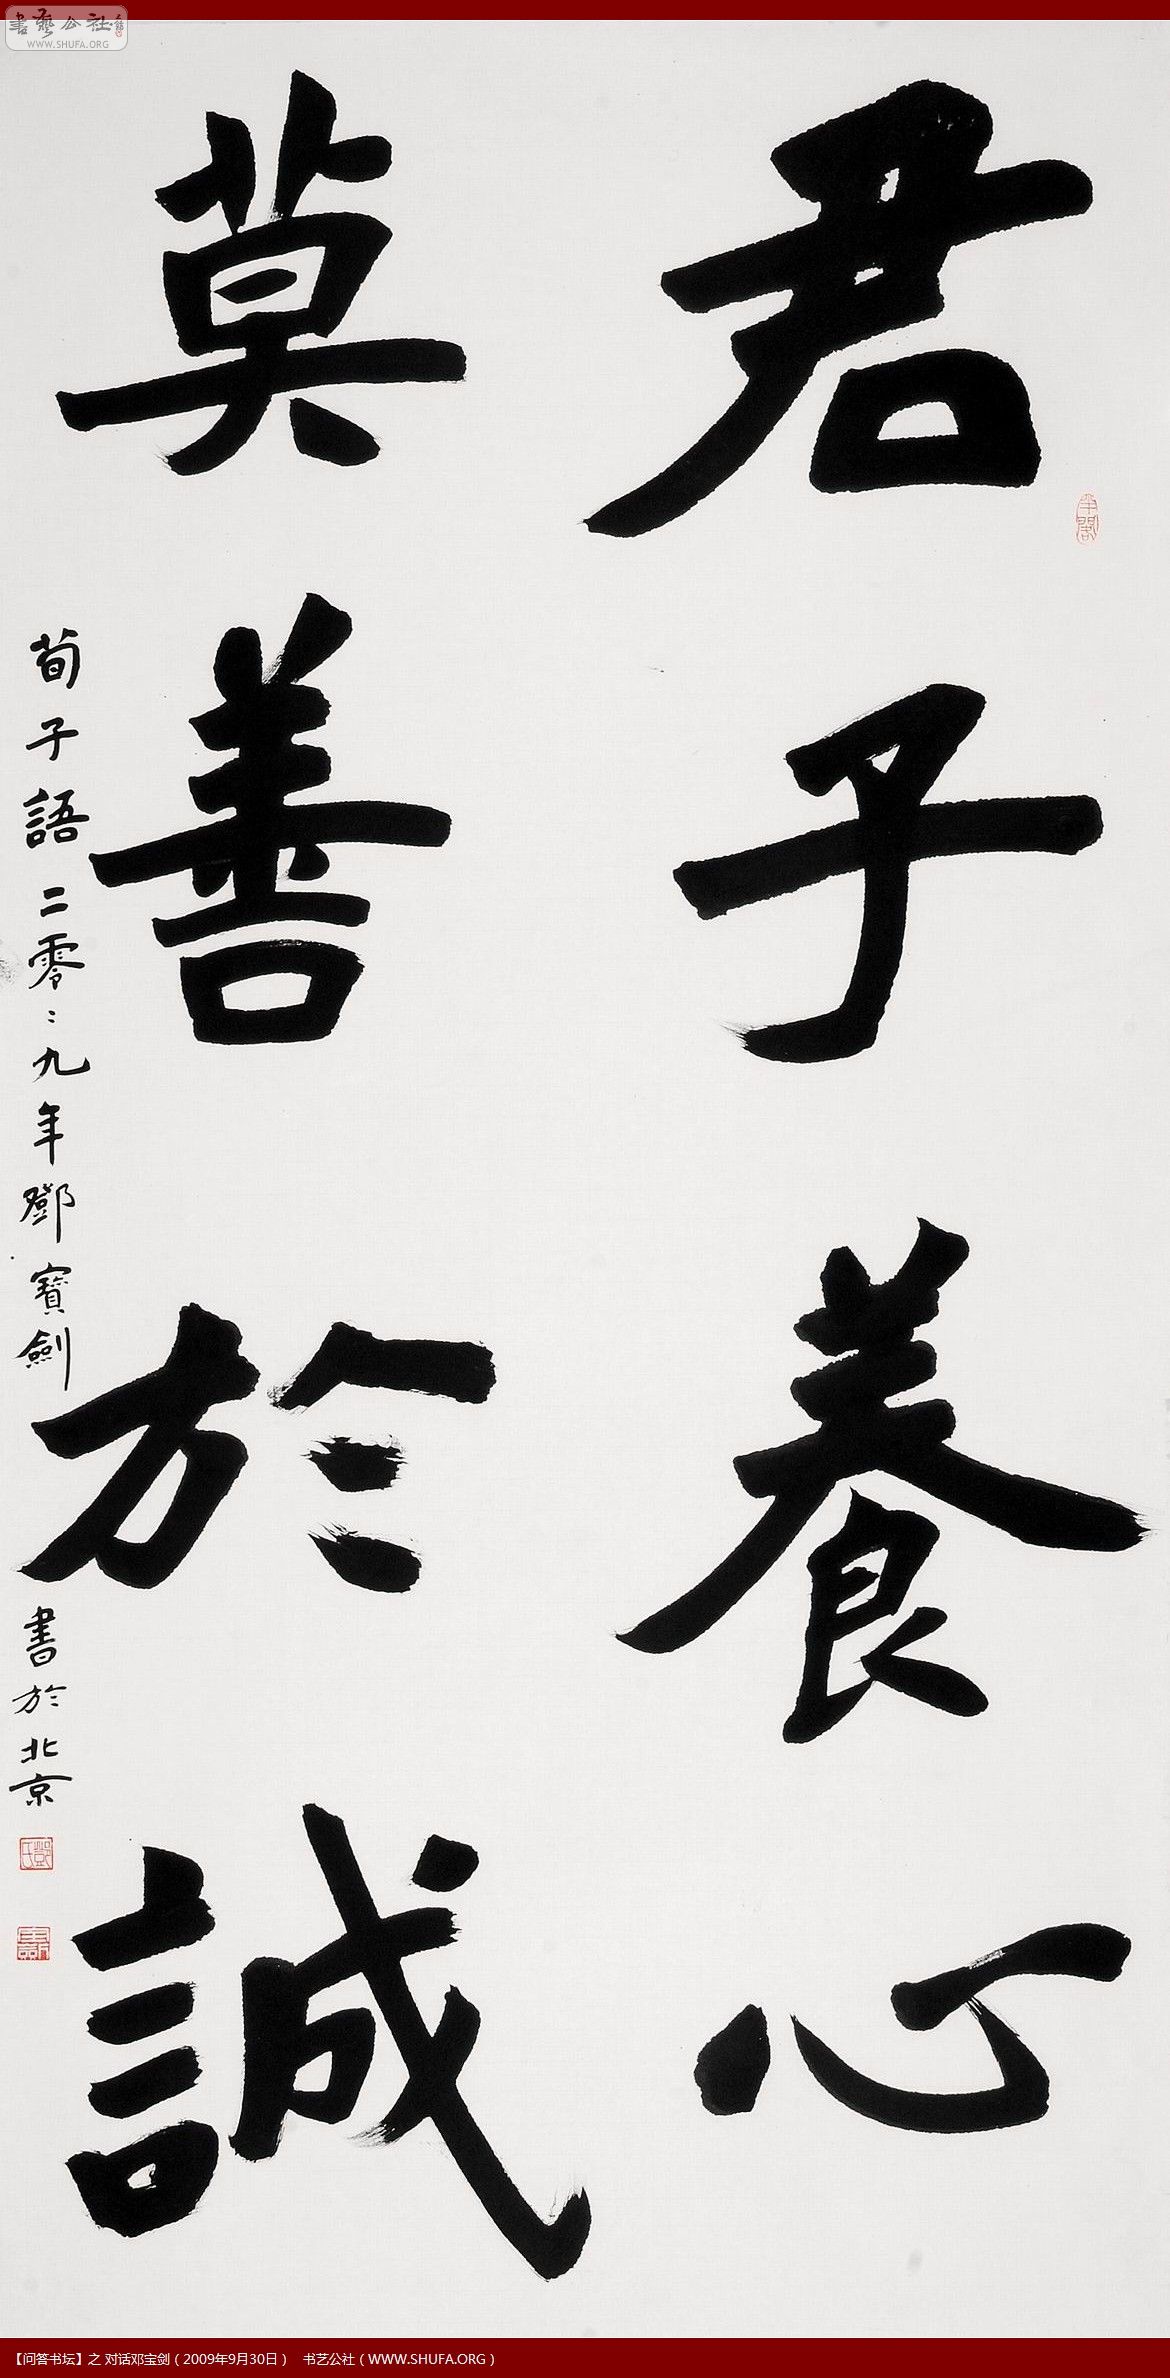 書藝公社
WWW.SHUFA.ORG
君子養心
莫善於誠
荀子語二零零九年鄧寶劍書於北京
鄧氏
【问答书坛】之 对话邓宝剑（2009年9月30日） 书艺公社（WWW.SHUFA.ORG）